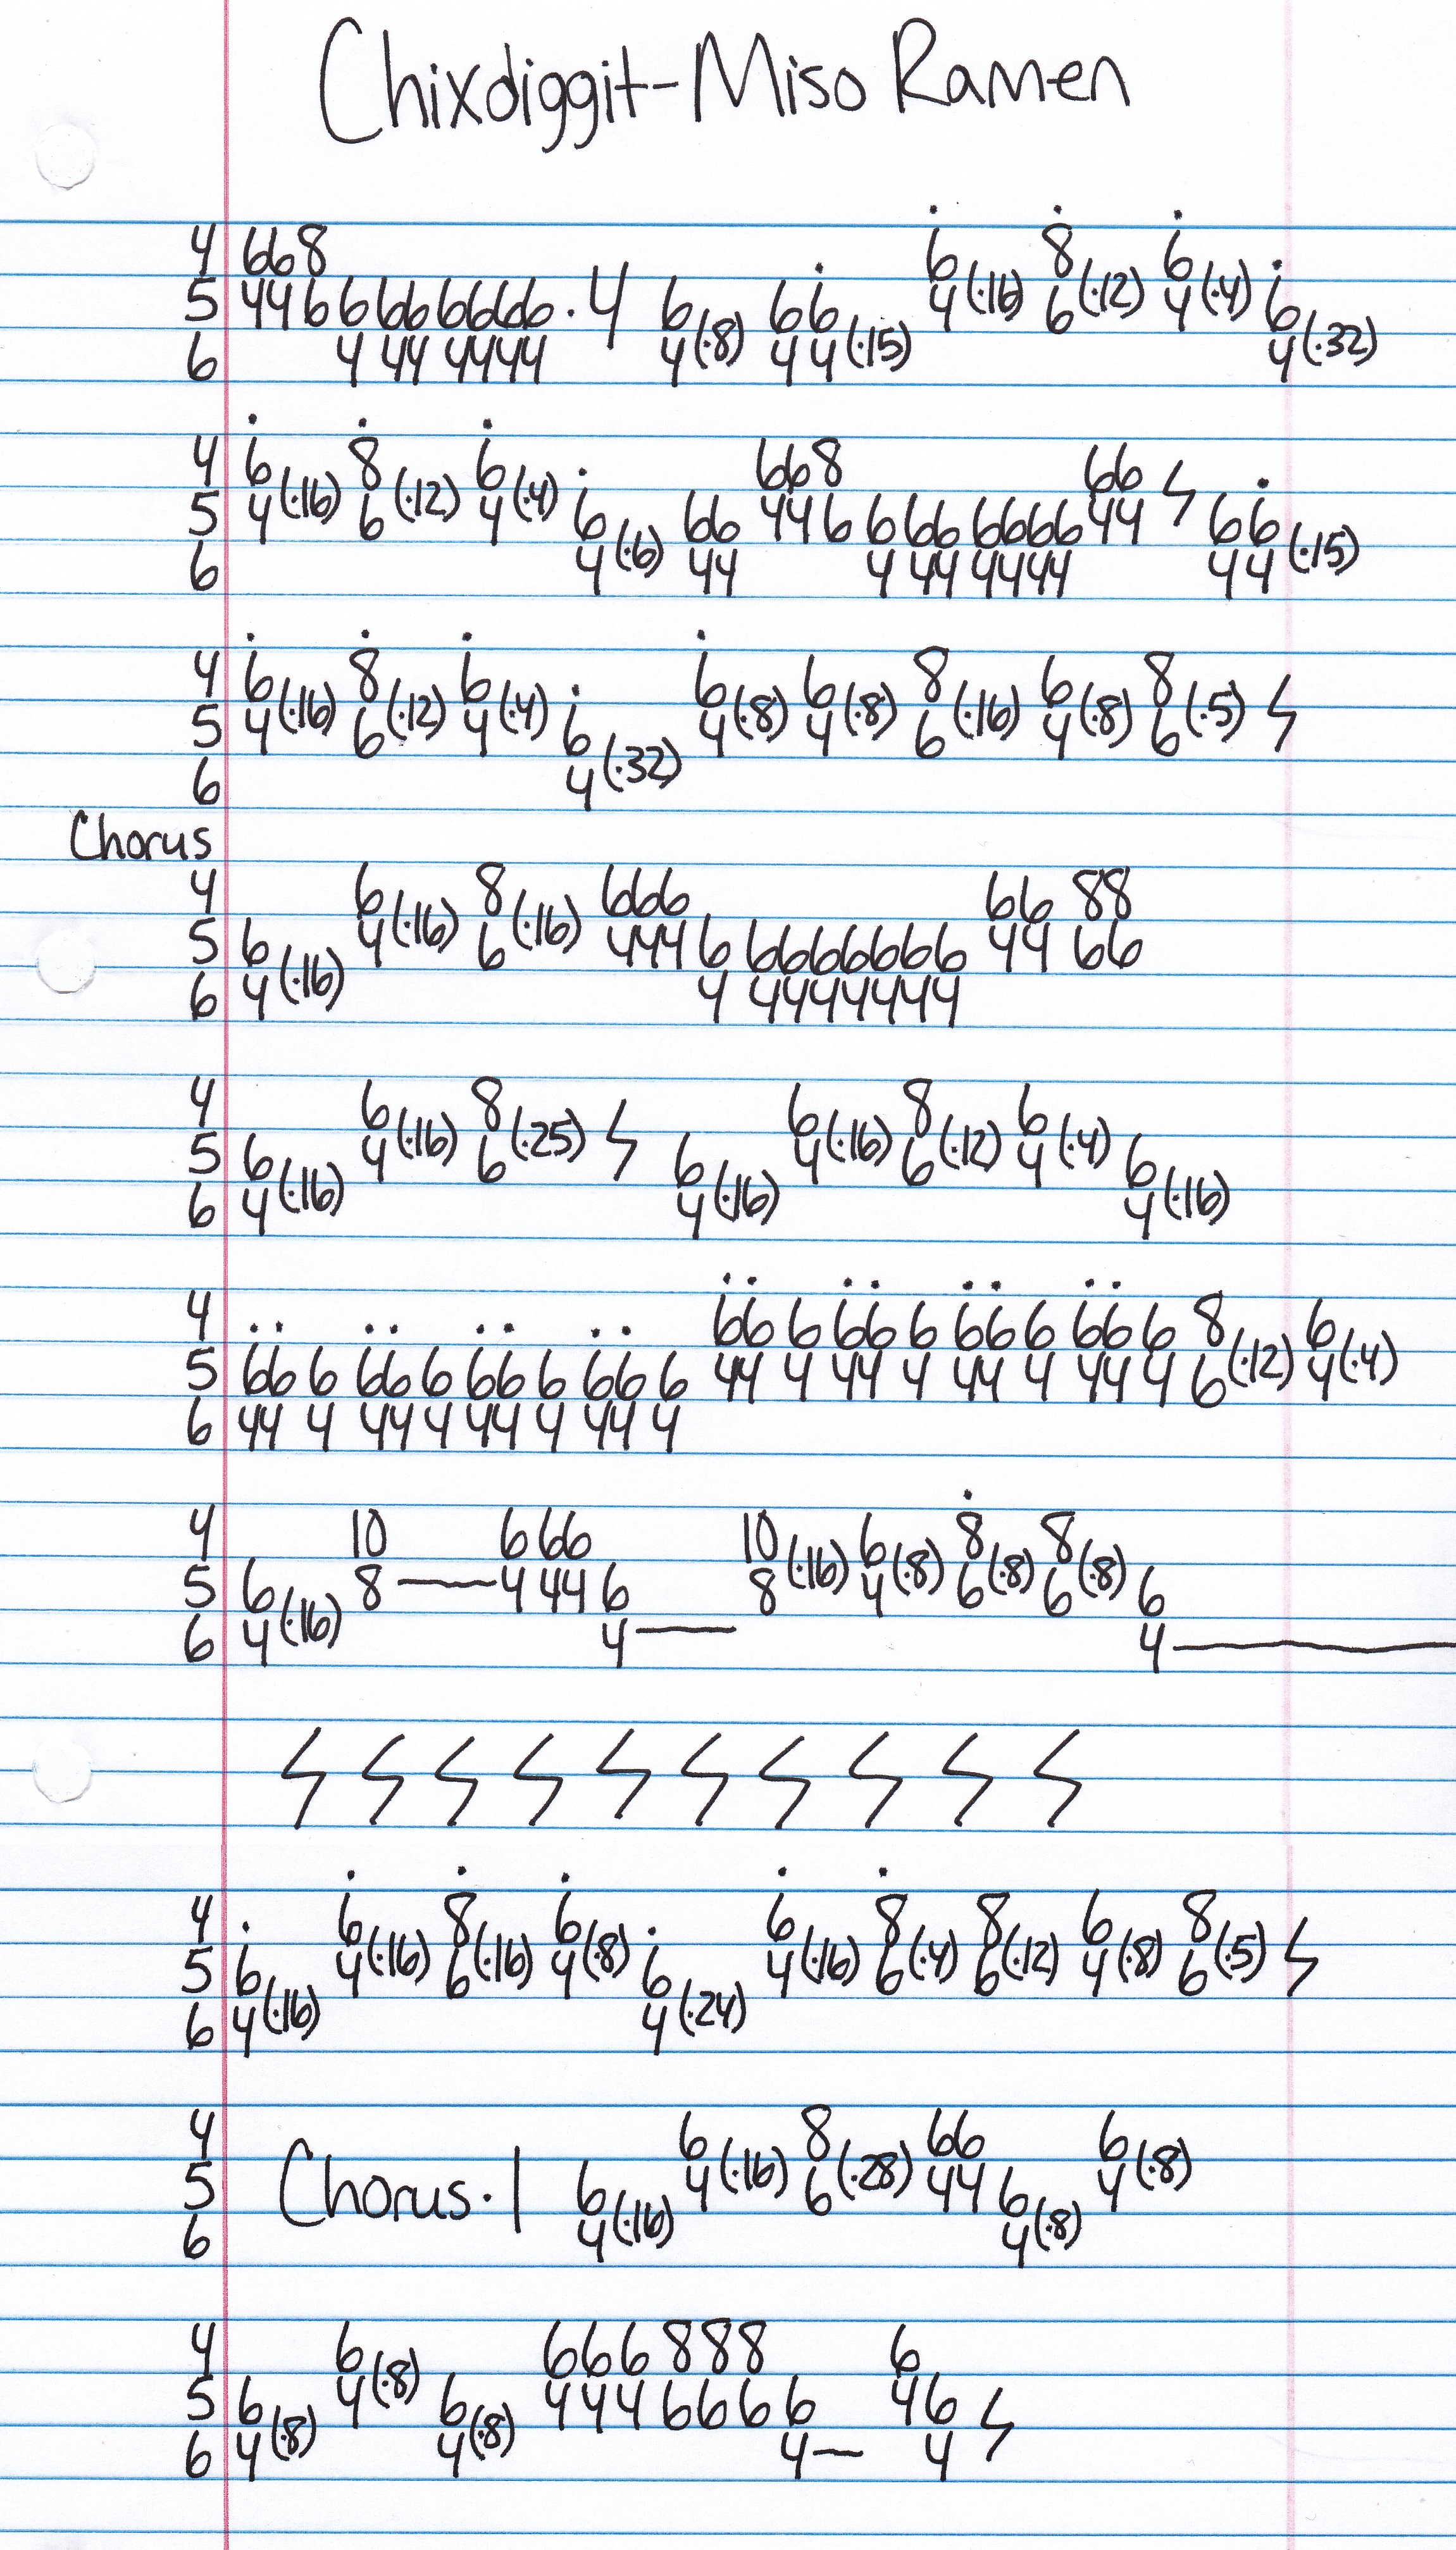 Chixdiggit-Miso Ramen
4 668
5 446 6 66 6666 · 4 6 66 6 8 6 6
6 4 44 4444 4(·8) 44(·15) 4(·16) 6(·12) 4(·4) 4(·32)
4 6 8 6 668 66
5 4(·16) 6(·12) 4(·4) 6 66 446 6 66 6666 44 66
6 4(·6) 44 4 44 4444 44(·15)
4 6 8 6 6 6 8 6 8
5 4(·16) 6(·12) 4(·4) 6 4(·8) 4(·8) 6(·16) 4(·8) 6(·5)
6 4(·32)
Chorus
4 6 8 666 66 88
5 6 4(·16) 6(·16) 444 6 6666666 44 66
6 4(·16) 4 4444444
4 6 8 6 8 6
5 6 4(·16) 6(·25) 6 4(·16) 6(·12) 4(·4) 6
6 4(·16) 4(·16) 4(·16)
4 66 6 66 6 66 6 66 6 8 6
5 66 6 66 6 66 6 66 6 44 4 44 4 44 4 44 4 6(·12) 4(·4)
6 44 4 44 4 44 4 44 4
4 10 6 66 10 6 8 8
5 6 8 — 4 44 6 8(·16) 4(·8) 6(·8) 6(·8) 6
6 4(·16) 4 — 4 —
4 6 8 6 6 8 8 6 8
5 6 4(·16) 6(·16) 4(·8) 6 4(·16) 6(·4) 6(·12) 4(·8) 6(·5)
6 4(·16) 4(·24)
4 6 8 66 6
5 Chorus · | 6 4(·16) 6(·28) 44 6 4(·8)
6 4(·16) 4(·8)
4 6 666 888 6
5 6 4(·8) 6 444 666 6 4 6
6 4(·8) 4(·8) 4 — 4